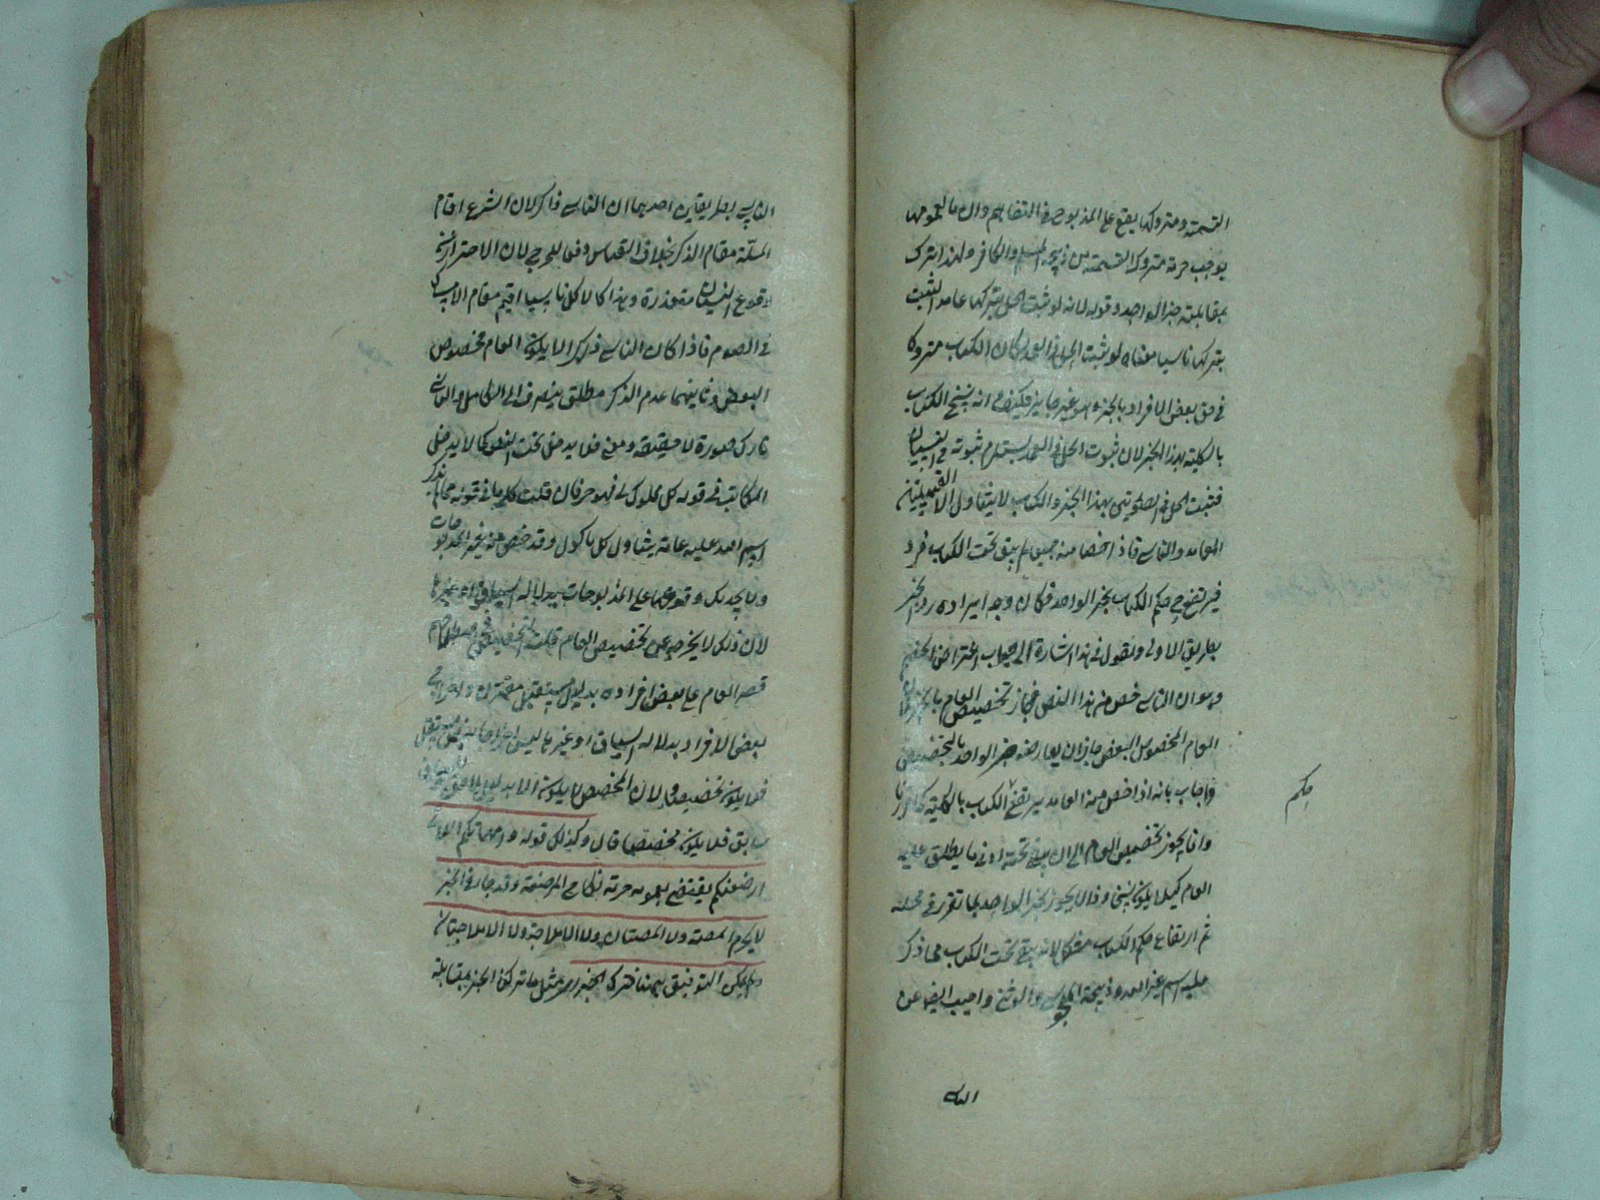 التسمية ومتروكها يقع على المذبوح في التفاهم وان ما لعمومها
يوجب حرمة متروك التسمية من ذبيحة المسلم والكافر ولهذا ترك
بمقابلته خبر الواحد وقوله لانه لو ثبت الحل بتركها عامدا لثبت
بتركها ناسيا معناه لو ثبت الحل في العمد لكان الكتاب متروكا
في حق بعض الافراد بالخبر وهو غير جايز فكيف انه ينسخ الكتاب
بالكلية بهذا الخبر لان ثبوت الحل في العمد يستلزم ثبوته في النسيان
فثبت الحل في الصورتين بهذا الخبر والكتاب لا يتناول الا القبيلتين
العامد والناسي فاذا خصا منه جميعا لم يبق تحت الكتاب فرد
فيرتفع ح حكم الكتاب بخبر الواحد فكان وجه ايراده رد الخبر
بطريق الاولى ونقول في هذا اشارة الى جواب اعتراض الخصم
وهو ان الناسي خص من هذا النص فجاز تخصيص العام بالخبر لان
العام المخصوص البعض جاز ان يعارضه خبر الواحد بالتخصيص
واجاب بانه اذا خص منه العامد يرتفع الكتاب بالكلية كما ذكرنا
وانما يجوز تخصيص العام الى ان يبقى تحته ادنى ما يطلق عليه
العام كيلا يكون نسخا وذا لا يجوز بخبر الواحد لما تقرر في محله
ثم ارتفاع حكم الكتاب مشكل لانه بقي تحت الكتاب مما ذكر
عليه اسم غير الله وذبيحة المجوسي والوثني واجيب ايضا عن
حكم
الناسي
الناسي بطريقين احدهما ان الناسي ذاكر لان الشرع اقام
الملة مقام الذكر بخلاف القياس دفعا للحرج لان الاحتراز عن
وقوع النسيان متعذرة وهذا كالاكل ناسيا اقيم مقام الامساك
في الصوم فاذا كان الناسي ذاكرا لا يكون العام مخصوص
البعض وثانيهما عدم الذكر مطلق ينصرف الى الكامل والناسي
تارك صورة لا حقيقة ومعنى فلا يدخل تحت النص كما لا يدخل
المكاتب في قوله كل مملوك لي فهو حر فان قلت كلمة ما في قوله مما لم يذكر
اسم الله عليه عامة يتناول كل ماكول وقد خص منه غير المذبوحات
ولا يجديك وقوعها على المذبوحات بدلالة السياق او غيرها
لان ذلك لا يخرجه عن تخصيص العام قلت التخصيص في اصطلاحهم
قصر العام على بعض افراده بدليل مستقل مقترن واخراج
بعض الافراد بدلالة السياق او غيرها ليس اخراجا بدليل مستقل
فلا يكون تخصيصا ولان المخصص لا يكون الا بدليل لاحق
سابق فلا يكون مخصصا قال وكذلك قوله وامهاتكم اللاتي
ارضعنكم يقتضي بعمومه حرمة نكاح المرضعة وقد جاء في الخبر
لا يحرم المصة ولا المصتان ولا الاملاجة ولا الاملاجتان
ولم يمكن التوفيق بينهما فترك الخبر مثل ما ترك الخبر بمقابلة